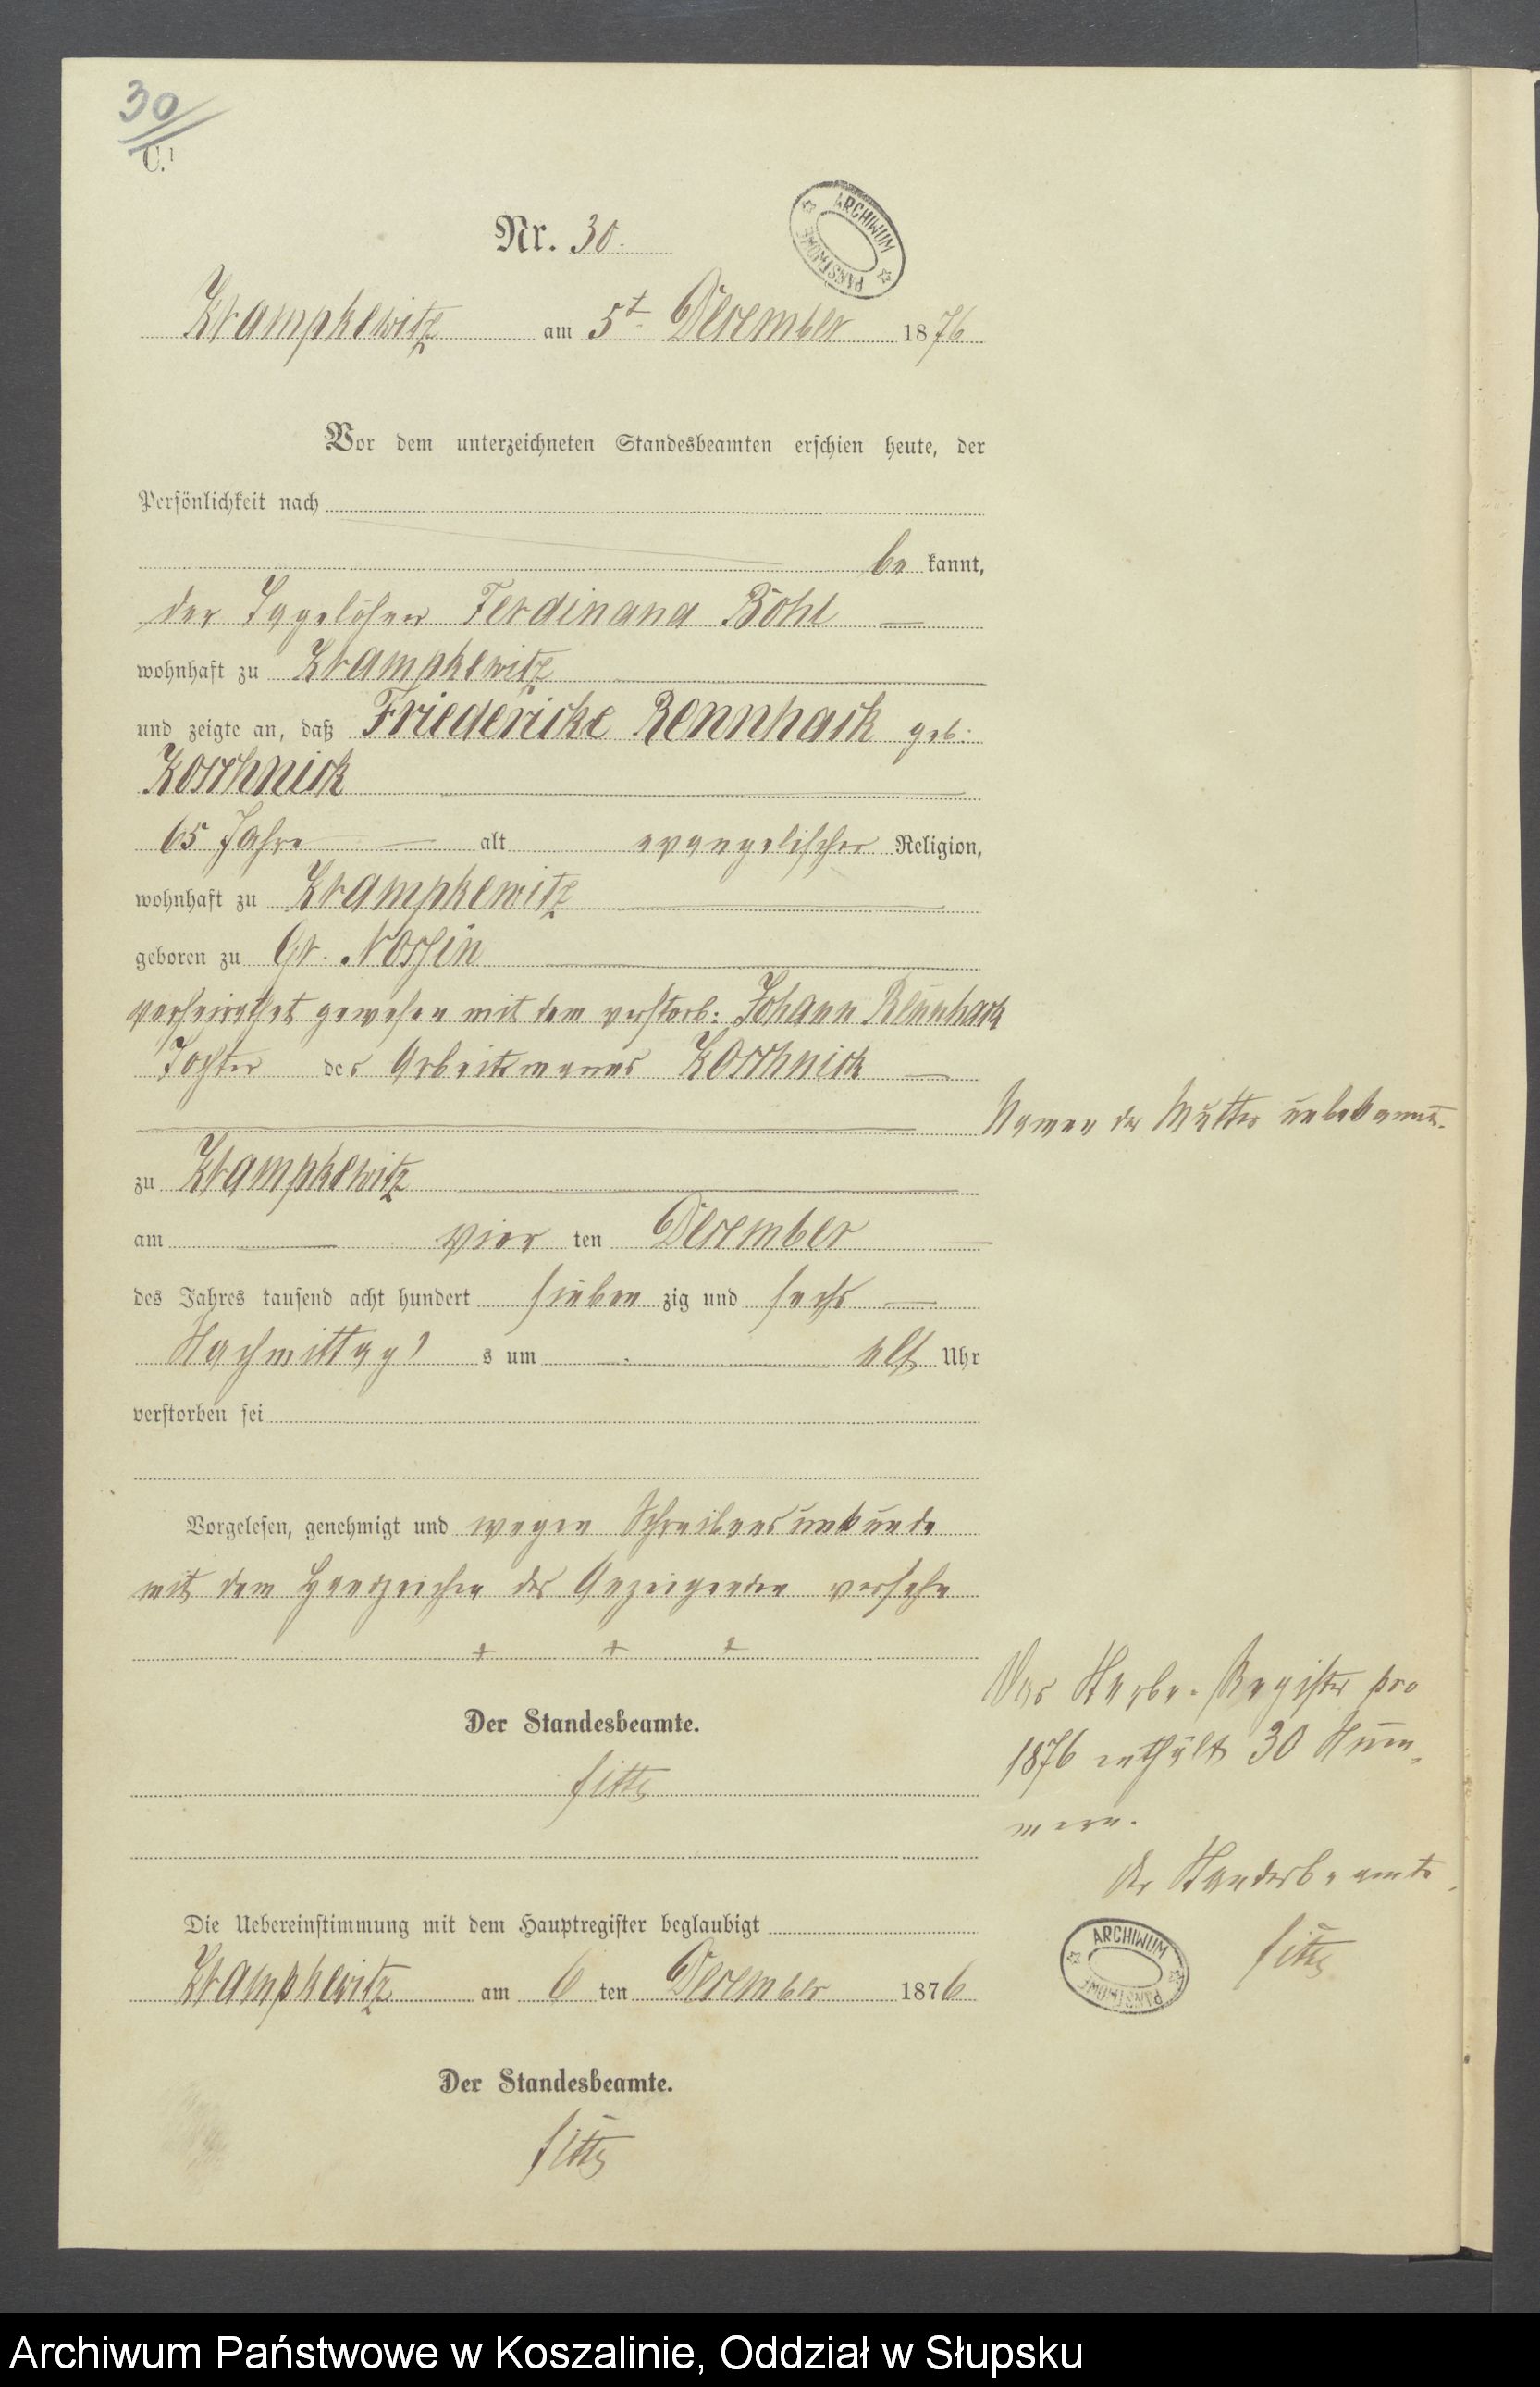 30
C.
Nr. 30.
ARCHIWUM PAŃSTWOWE
Krampkewitz am 5t. December 1876
Vor dem unterzeichneten Standesbeamten erschien heute, der
Persönlichkeit nach
be kannt,
der Tagelöhner Ferdinand Bohl
wohnhaft zu Krampkewitz
und zeigte an, daß Friedericke Rennhack geb:
Koschnick
65 Jahre alt evangelischer Religion,
wohnhaft zu Krampkewitz
geboren zu Gr. Nossin
verheirathet gewesen mit dem verstorb: Johann Rennhack
Tochter des Arbeitsmanns Koschnick
Namen der Mutter unbekannt.
zu Krampkewitz
am vier ten December
des Jahres tausend acht hundert sieben zig und sechs
Nachmittags s um elf Uhr
verstorben sei
Vorgelesen, genehmigt und wegen Schreibensunkunde
mit dem Handzeichen des Anzeigenden versehn
+ + +
Das Sterbe-Register pro
1876 enthält 30 Num-
mern.
Der Standesbeamte.
Der Standesbeamte
Die Uebereinstimmung mit dem Hauptregister beglaubigt
ARCHIWUM PAŃSTWOWE
Krampkewitz am 6 ten December 1876
Der Standesbeamte.
Archiwum Państwowe w Koszalinie, Oddział w Słupsku